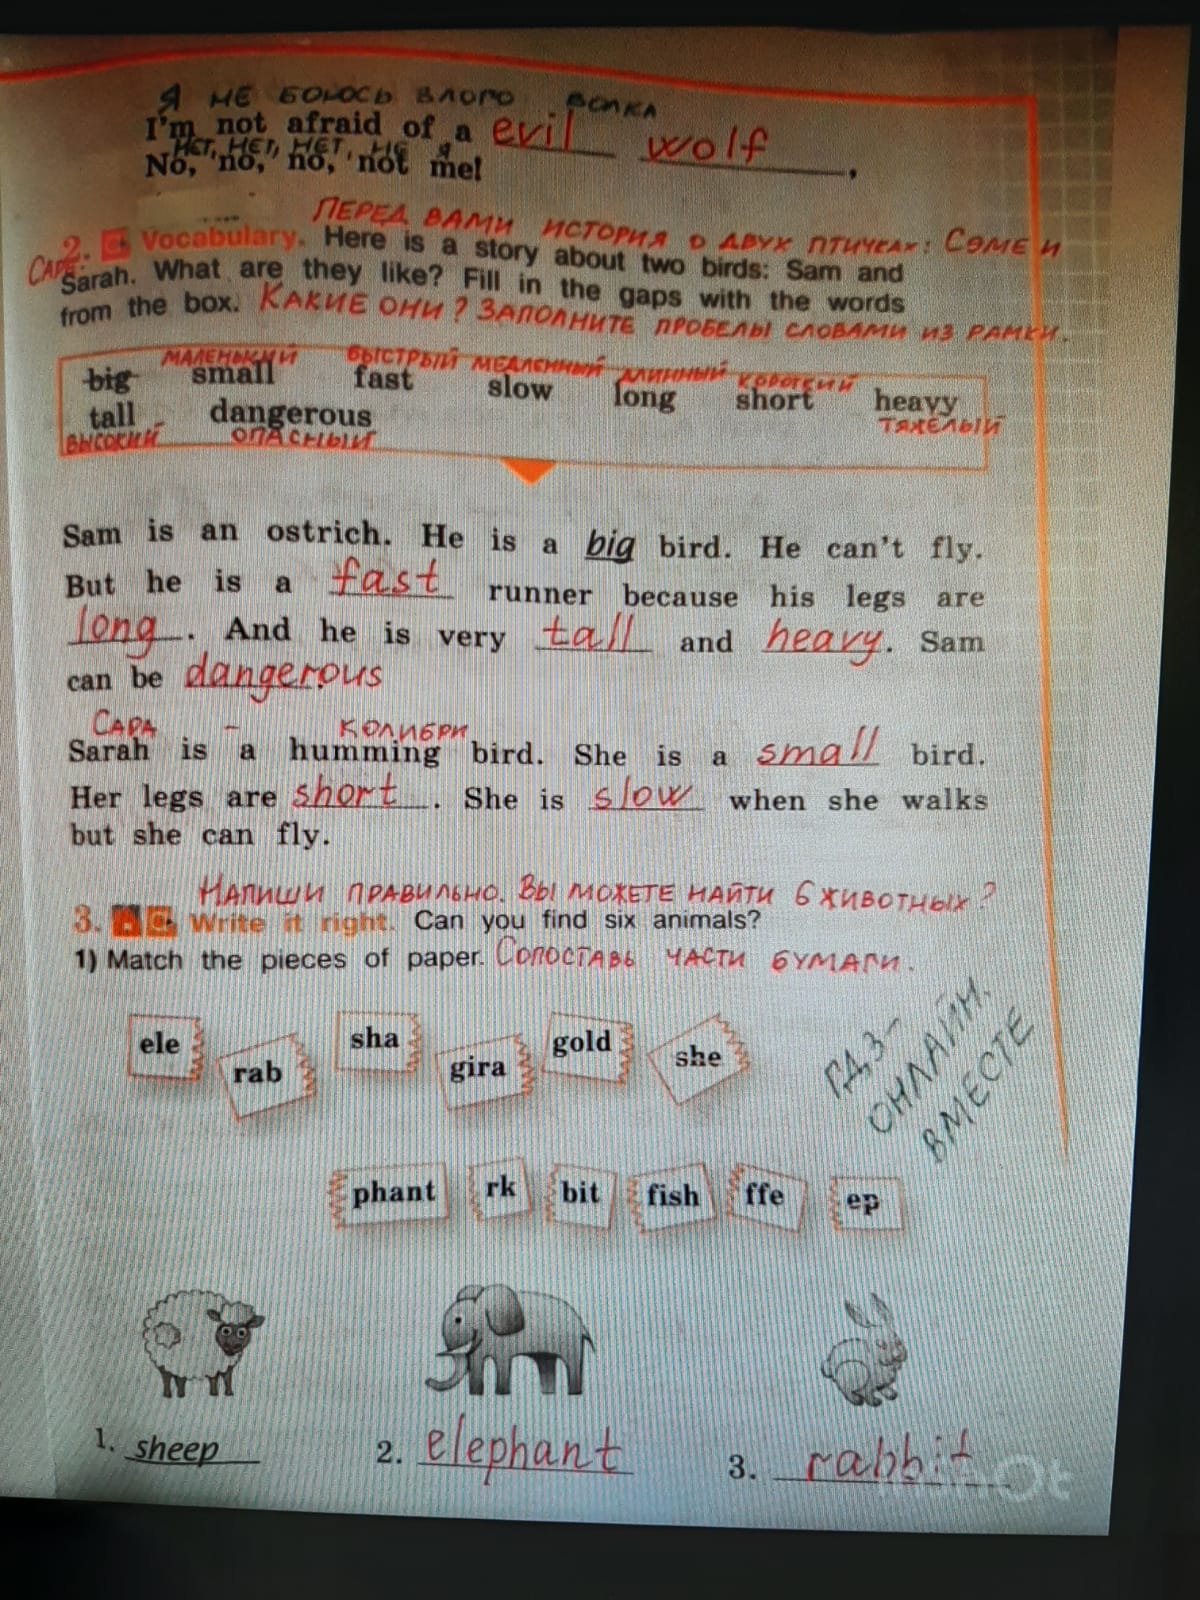 Я НЕ БОЮСЬ ЗЛОГО ВОЛКА
I'm not afraid of a evil wolf,
НЕТ, НЕТ, НЕТ, НЕ Я
No, no, no, not me!
ПЕРЕД ВАМИ ИСТОРИЯ О ДВУХ ПТИЧКАХ: СЭМЕ И
2. Vocabulary. Here is a story about two birds: Sam and
САРЕ
Sarah. What are they like? Fill in the gaps with the words
from the box. КАКИЕ ОНИ? ЗАПОЛНИТЕ ПРОБЕЛЫ СЛОВАМИ ИЗ РАМКИ.
МАЛЕНЬКИЙ БЫСТРЫЙ МЕДЛЕННЫЙ ДЛИННЫЙ КОРОТКИЙ
big small fast slow long short heavy
ТЯЖЕЛЫЙ
tall dangerous
ВЫСОКИЙ ОПАСНЫЙ
Sam is an ostrich. He is a big bird. He can't fly.
But he is a fast runner because his legs are
long. And he is very tall and heavy. Sam
can be dangerous
САРА – КОЛИБРИ
Sarah is a humming bird. She is a small bird.
Her legs are short. She is slow when she walks
but she can fly.
НАПИШИ ПРАВИЛЬНО. ВЫ МОЖЕТЕ НАЙТИ 6 ЖИВОТНЫХ?
3. Write it right. Can you find six animals?
1) Match the pieces of paper. СОПОСТАВЬ ЧАСТИ БУМАГИ.
ele rab sha gira gold she
ГДЗ-
ОНЛАЙН.
ВМЕСТЕ
phant rk bit fish ffe ep
1. sheep 2. elephant 3. rabbit